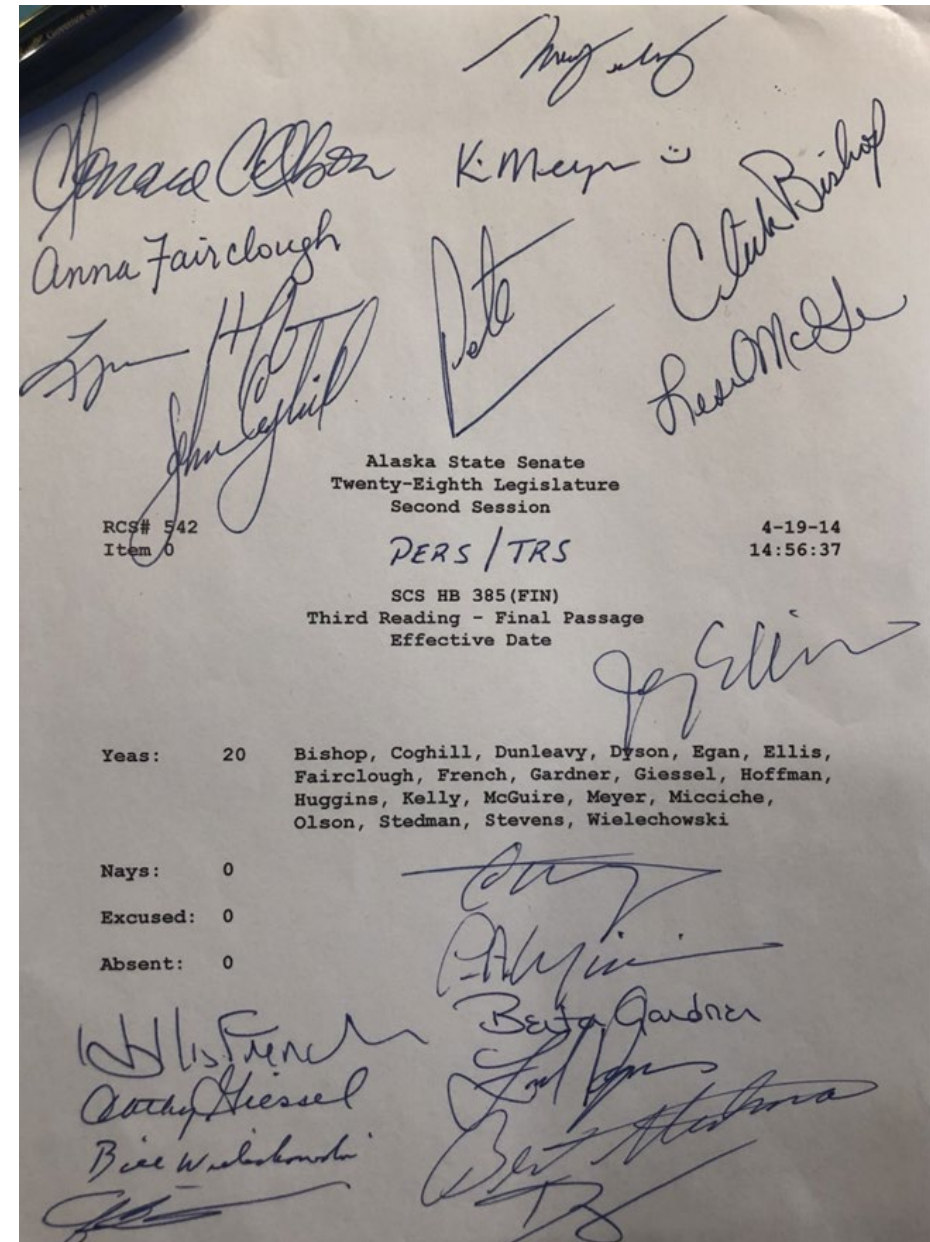 K. Meyer :)
Click Bishop
Anna Fairclough
Pete
Lesil McGuire
John Coghill
Alaska State Senate
Twenty-Eighth Legislature
Second Session
RCS# 542 4-19-14
Item 0 PERS/TRS 14:56:37
SCS HB 385(FIN)
Third Reading - Final Passage
Effective Date
Yeas: 20 Bishop, Coghill, Dunleavy, Dyson, Egan, Ellis,
Fairclough, French, Gardner, Giessel, Hoffman,
Huggins, Kelly, McGuire, Meyer, Micciche,
Olson, Stedman, Stevens, Wielechowski
Nays: 0
Excused: 0
Absent: 0
Berta Gardner
Hollis French
Cathy Giessel
Bill Wielechowski
Bert Stedman